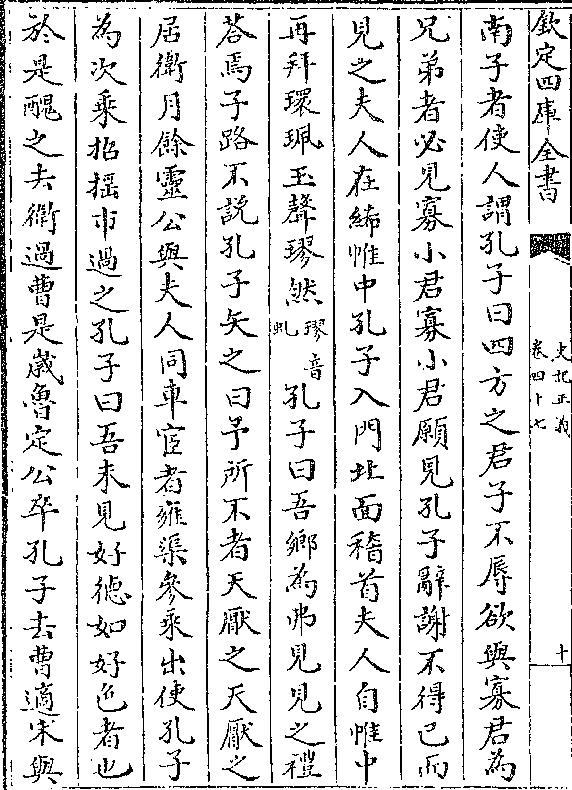 欽定四庫全書
史記正義
卷四十七
十
南子者使人謂孔子曰四方之君子不辱欲與寡君為
兄弟者必見寡小君寡小君願見孔子辭謝不得已而
見之夫人在絺帷中孔子入門北面稽首夫人自帷中
再拜環珮玉聲璆然璆音虬孔子曰吾鄉為弗見見之禮
荅焉子路不說孔子矢之曰予所不者天厭之天厭之
居衛月餘靈公與夫人同車宦者雍渠參乘出使孔子
為次乘招揺市過之孔子曰吾未見好德如好色者也
於是醜之去衛過曹是歲魯定公卒孔子去曹適宋與